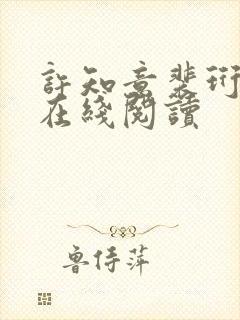 許知意裴珩
在綫閱讀
魯侍萍